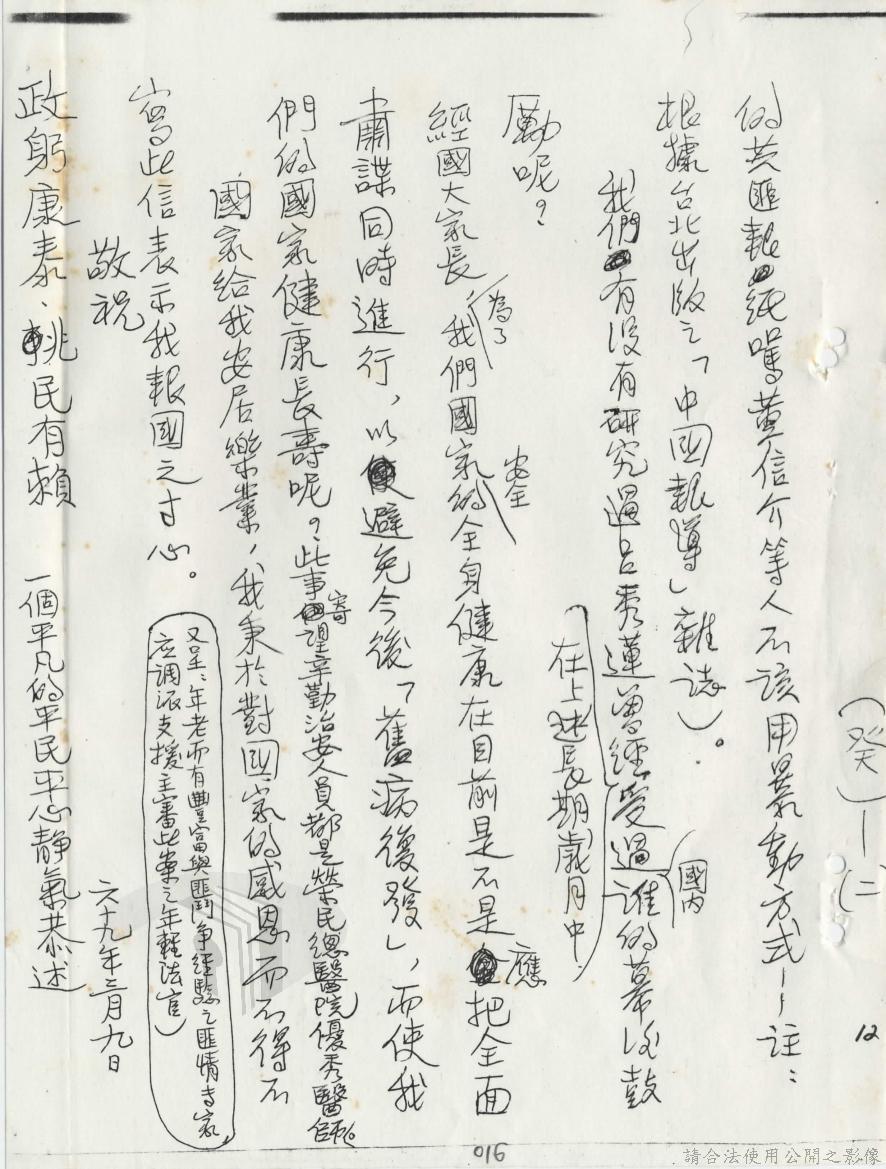 (癸)—(二)
12
的共匪報紙罵黃信介等人不該用暴動方式——註：
根據台北出版之「中國報導」雜誌)。
我們有沒有研究過呂秀蓮曾經受過誰的幕後鼓
國內
在上述長期歲月中
勵呢？
經國大家長，我們國家的全身健康在目前是不是應把全面
為了
安全
肅諜同時進行，以避免今後「舊病復發」，而使我
們的國家健康長壽呢？此事寄望辛勤治安人員都是榮民總醫院優秀醫師。
國家給我安居樂業，我秉於對國家的感恩而不得不
寫此信表示我報國之寸心。
又呈：年老而有豐富與匪鬥爭經驗之匪情專家，
应调派支援主審此案之年輕法官)
敬祝
六十九年三月九日
政躬康泰、桃民有賴
一個平凡的平民平心靜氣恭述
016
請合法使用公開之影像